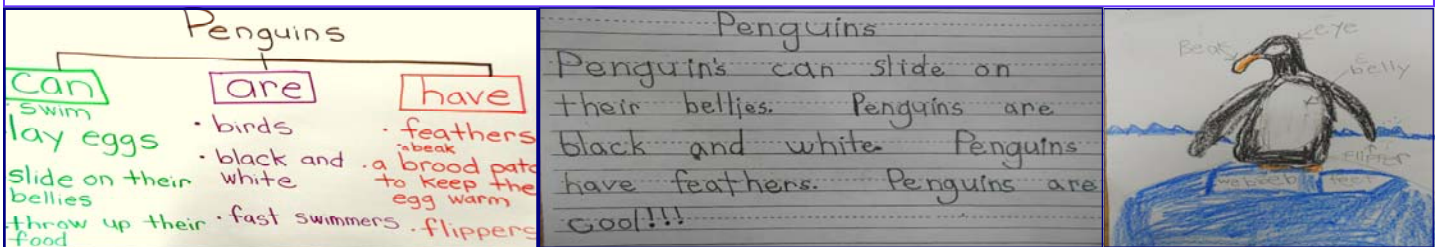 Penguins
can
· swim
lay eggs
slide on their
bellies
throw up their
food
are
· birds
· black and
white
· fast swimmers
have
· feathers
· a beak
· a brood patc
to keep the
egg warm
· flippers
Penguins
Penguin's can slide on
their bellies. Penguins are
black and white. Penguins
have feathers. Penguins are
cool!!!
eye
Beak
belly
Flipper
webeeb feet